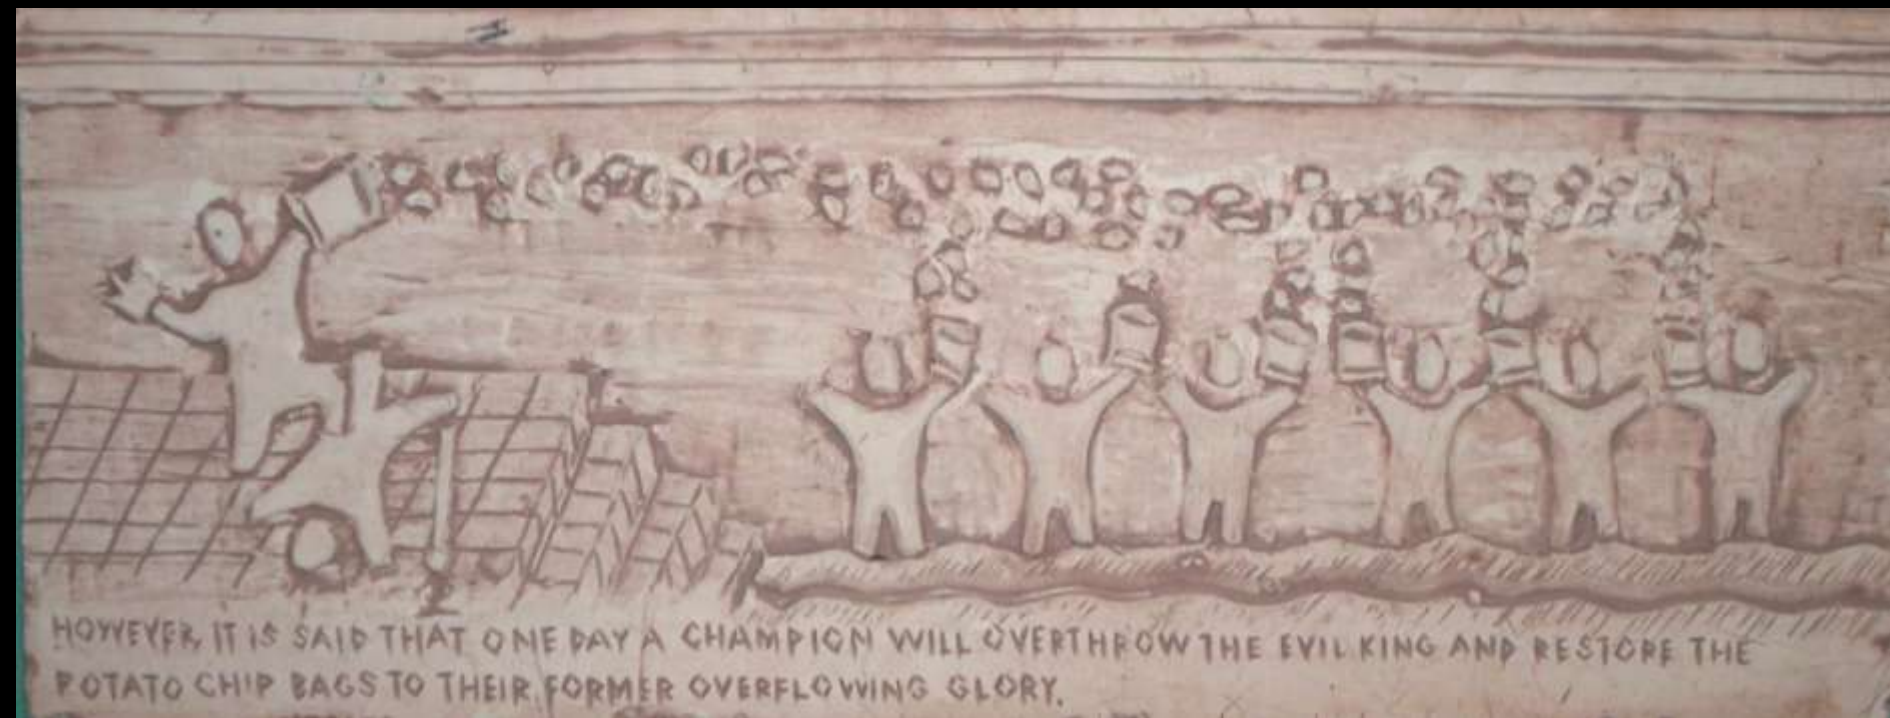 HOWEVER, IT IS SAID THAT ONE DAY A CHAMPION WILL OVERTHROW THE EVIL KING AND RESTORE THE
POTATO CHIP BAGS TO THEIR FORMER OVERFLOWING GLORY.